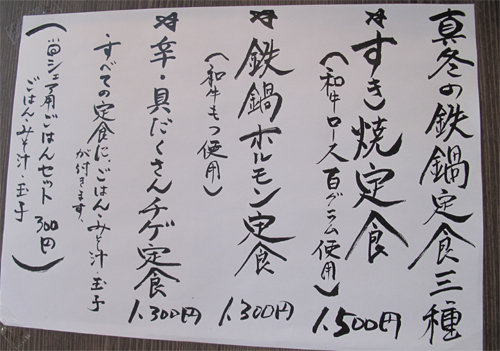 真冬の鉄鍋定食三種
☆すき焼定食
(和牛ロース百グラム使用) 1.500円
☆鉄鍋ホルモン定食
(和牛もつ使用) 1.300円
☆辛・具だくさんチゲ定食 1.300円
すべての定食に、ごはん・みそ汁・玉子
が付きます。
シェア用ごはんセット 300円
ごはん・みそ汁・玉子)